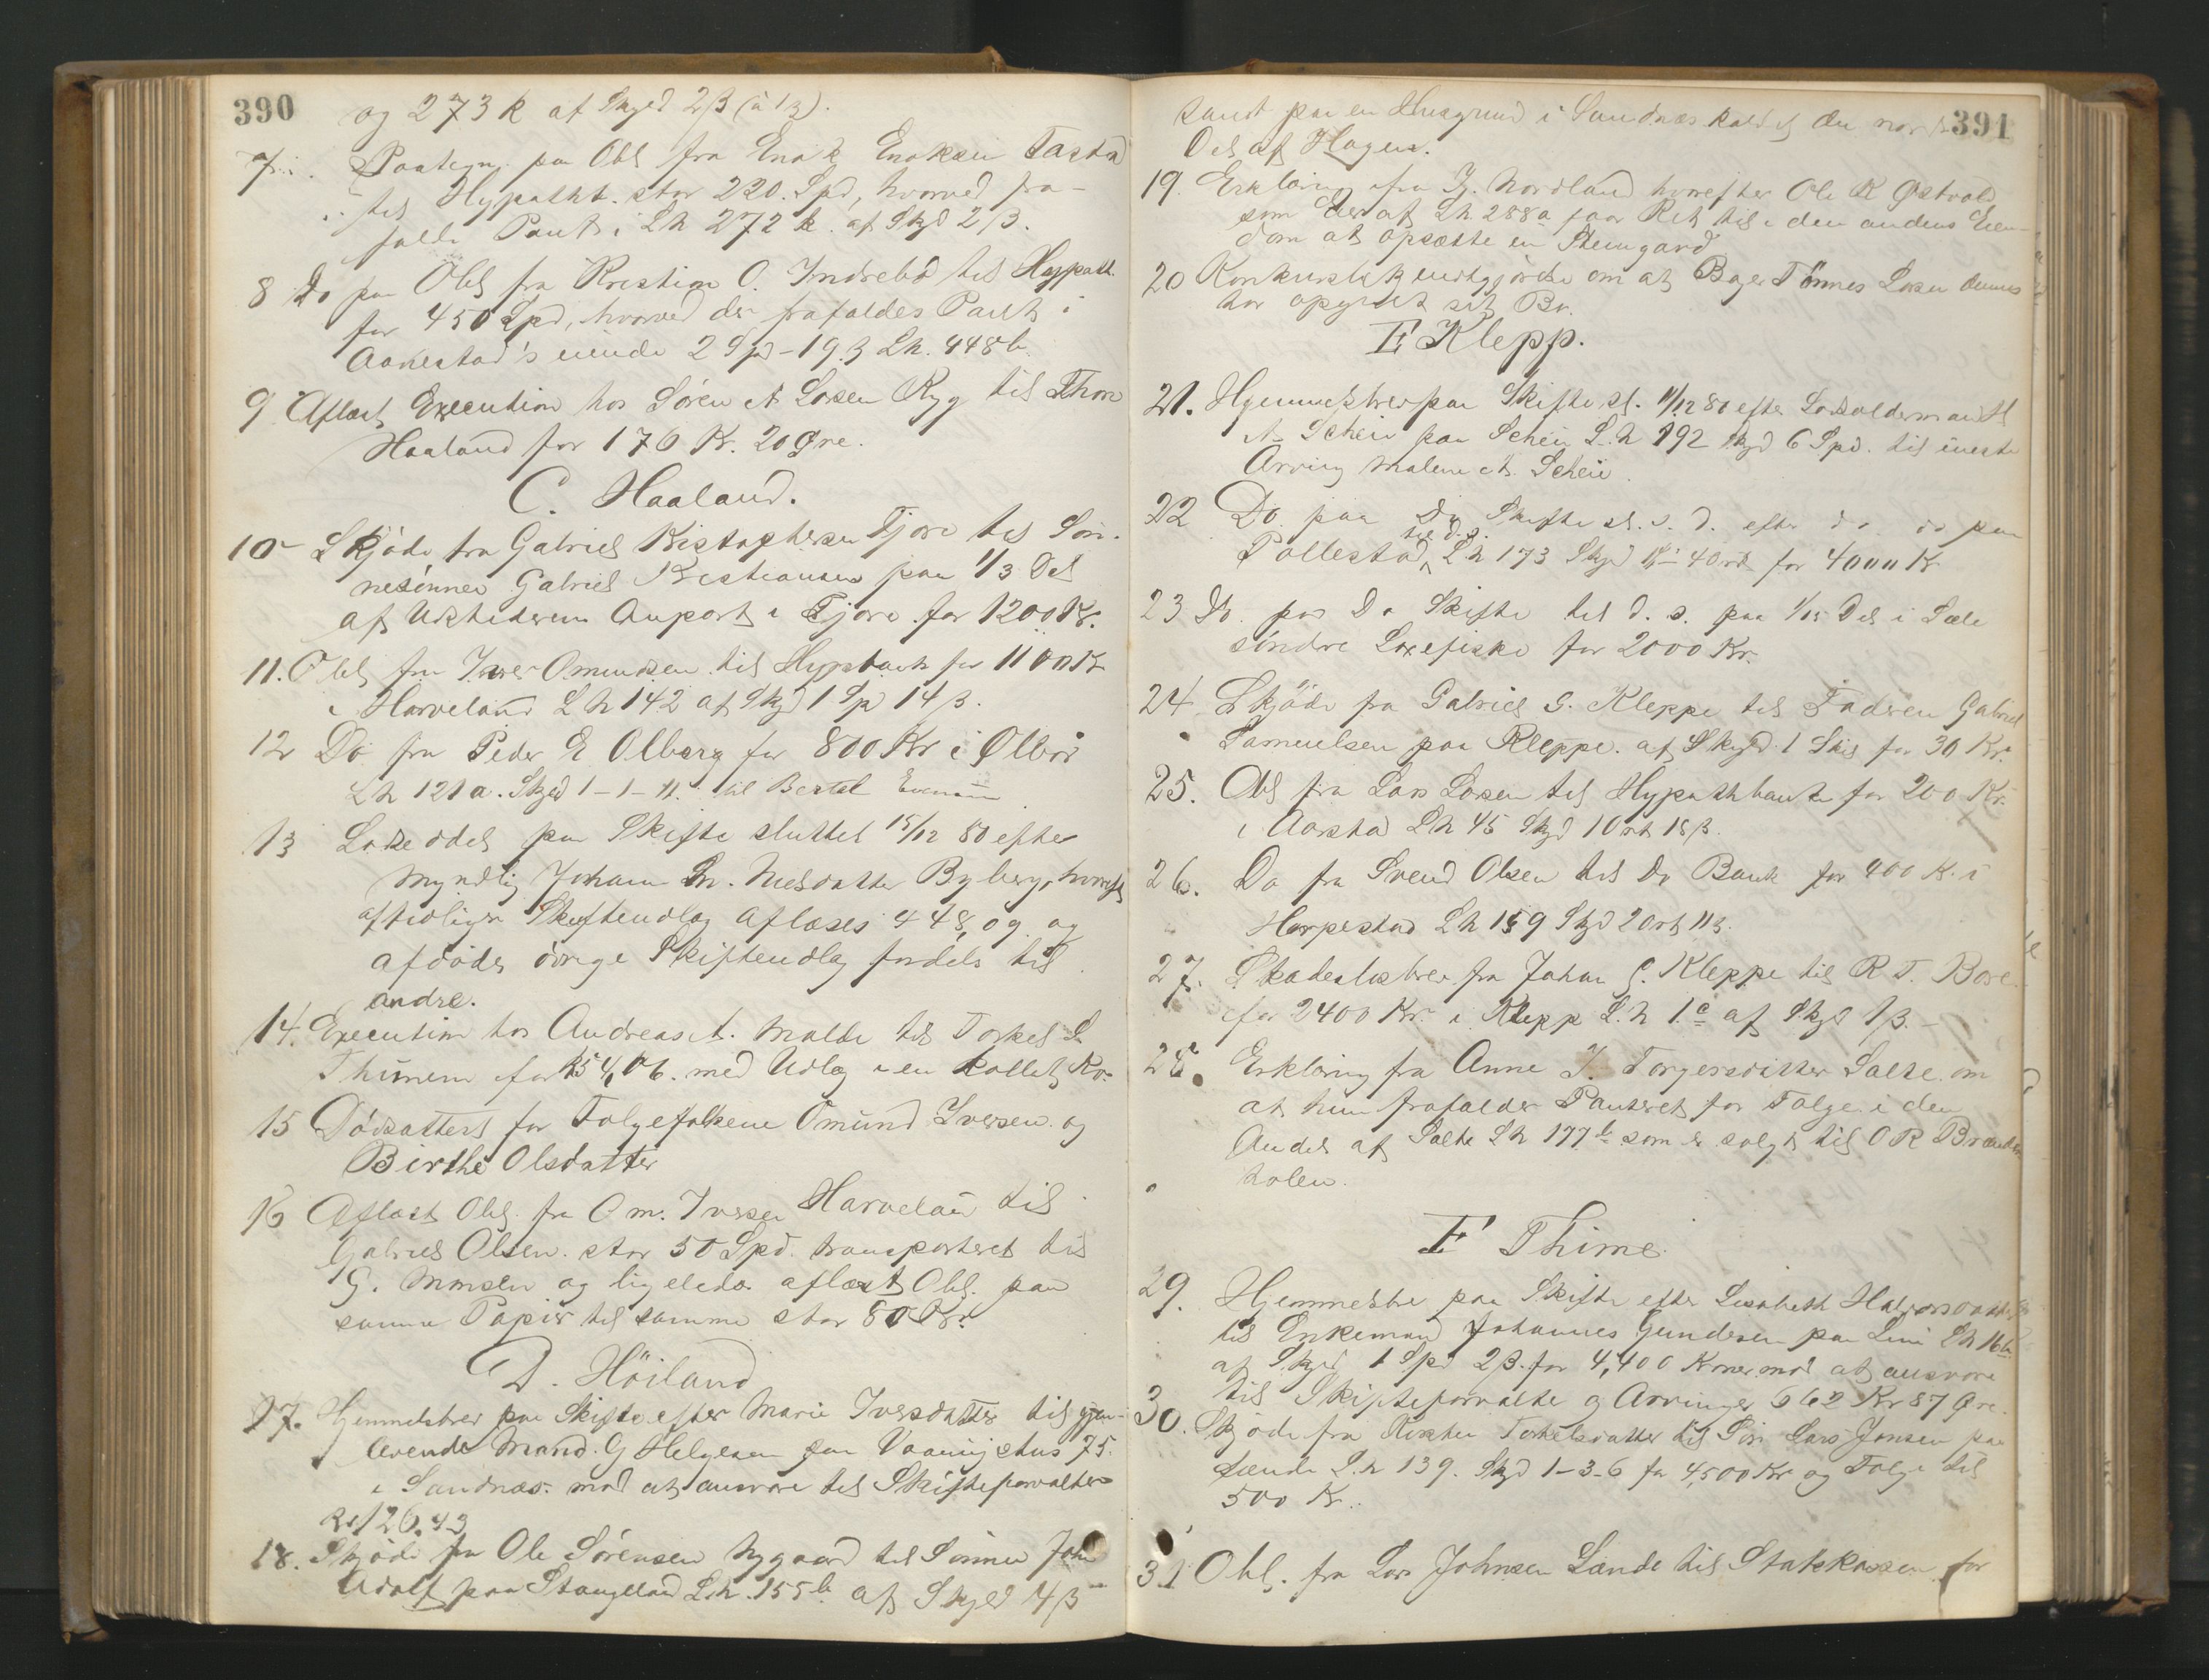 390
og 273 k af Skyld 2 β (à 1 β).
7. Paategn. paa Obl fra Enok Enoksen Tasta
til Hypothkt. stor 220. Spd, hvorved fra-
falde Pant i Lh 272 k. af Skyld 2 β.
8 Do paa Obl fra Kristine O. Indrebö til Hypoth.
for 450 Spd, hvorved der frafaldes Pant i
2 Spd - 19 β Lh. 448 b.
9 Aflæst Execution hos Sören A Larsen Ryg til Thore
Haaland for 176 Kr. 20 Øre.
C. Haaland.
10 Skjöde fra Gabriel Kristophersen Tjore til Sön-
nesönnen Gabriel Kristiansen paa 1/3 Del
af Udstederens Anpart i Tjore for 1200 Kr.
11. Obl fra Iver Omundsen til Hypbank for 1100 Kr
i Harveland Lh 142 af Skyld 1 Spd 14 β.
12 Do fra Peder E Olberg for 800 Kr i Ølbör
Lh 121 a. Skyld 1-1-11. til Bertel
13 Löseödel paa Skifte sluttet 15/12 80 efter
Myndlig Johanne M. Nilsdatter Byberg, hvorefter
aftidligere Skifteudlæg aflæses 448,09 og
afdödes övrige Skifteudlæg fordels til
andre.
14. Execution hos Andreas A. Malde til Torkel S.
Thunem for 154,06. med Udlæg i en kollet Ko.
15 Dödsattest for Folgefolkene Omund Iversen og
Birthe Olsdatter
16 Aflæst Obl. fra Om. Iversen Harveland til
Gabriel Olsen. stor 50 Spd. transporteret til
G. Monsen og ligeledes aflæst Obl. paa
samme Papir til samme stor 80 Kr.
D. Höiland
17. Hjemmelsbrev paa Skifte efter Marie Iversdatter til gjen-
levende Mand. G Helgesen paa Vaaningshus 75.
i Sandnæs. mod at ansvare til Skifteforvalter
Kr 126.43
18. Skjöde fra Ole Sörensen Nygaard til Sönnen John
Adolf paa Stangeland Lh. 155 b. af Skyld 4 β
391
samt paa en Husgrund i Sandnæs kaldet den nordre
Del af Hagen.
19. Erklæring fra J. Nordland hvorefter Ole K Østvold
som Eier af Lh 288 a faar Ret til i den andens Eien-
dom at opsætte en Stemgard
20 Konkursbekjendtgjörelse om at Bager Tönnes Larsen dennes
har opgivet sit Bo.
E Klepp.
21. Hjemmelsbrev paa Skifte sl. 11/12 80 efter Lodsoldermand H
A. Scheie paa Scheie L.h 192 Skyld 6 Spd. til eneste
Arving Malene A. Scheie.
22 Do. paa Do Skifte sl. s. d. efter do do paa
til d. s.
Pollestad, Lh 173 Skyld for 4000 Kr
23 Do. paa Do Skifte til d. s. paa 1/15 Del i Sele
söndre Laxefiske for 2000 Kr.
24 Skjöde fra Gabriel G. Kleppe til Faderen Gabriel
Samuelsen paa Kleppe. af Skyld 1 Skil for 30 Kr.
25. Obl fra Lars Larsen til Hypothbank for 200 Kr.
i Aarstad Lh 45 Skyld 1 Ort 18 β.
26. Do fra Svend Olsen til Do Bank for 400 K. i
Horpestad Lh 159 Skyld 2 ort 11 β.
27. Skadeslösbrev fra Johan G. Kleppe til R T. Bore
for 2400 Kr. i Klepp L.h 1 c af Skyld 1 β.-
28. Erklæring fra Anne J. Torgersdatter Salte om
at hun frafalder Panteret for Folge i den
Andel af Salte Lh 177 b som er solgt til O R Brænde-
holen.
F Thime.
29. Hjemmelsbr paa Skifte efter Lisabeth Halvorsdatter
til Enkemand Johannes Gundersen paa Line Lh 16 b.
af Skyld 1 Spd 2 β. for 4,400 Kroner mod at ansvare
til Skifteforvalter og Arvinger 562 Kr 87 Øre.
30. Skjöde fra Kirsten Torkelsdatter til Sön Lars Jonsen paa
Lænde L.h 139. Skyld 1-3-6 for 4500 Kr og Folge til
500 Kr.
31 Obl. fra Lars Johnsen Lænde til Statskassen for